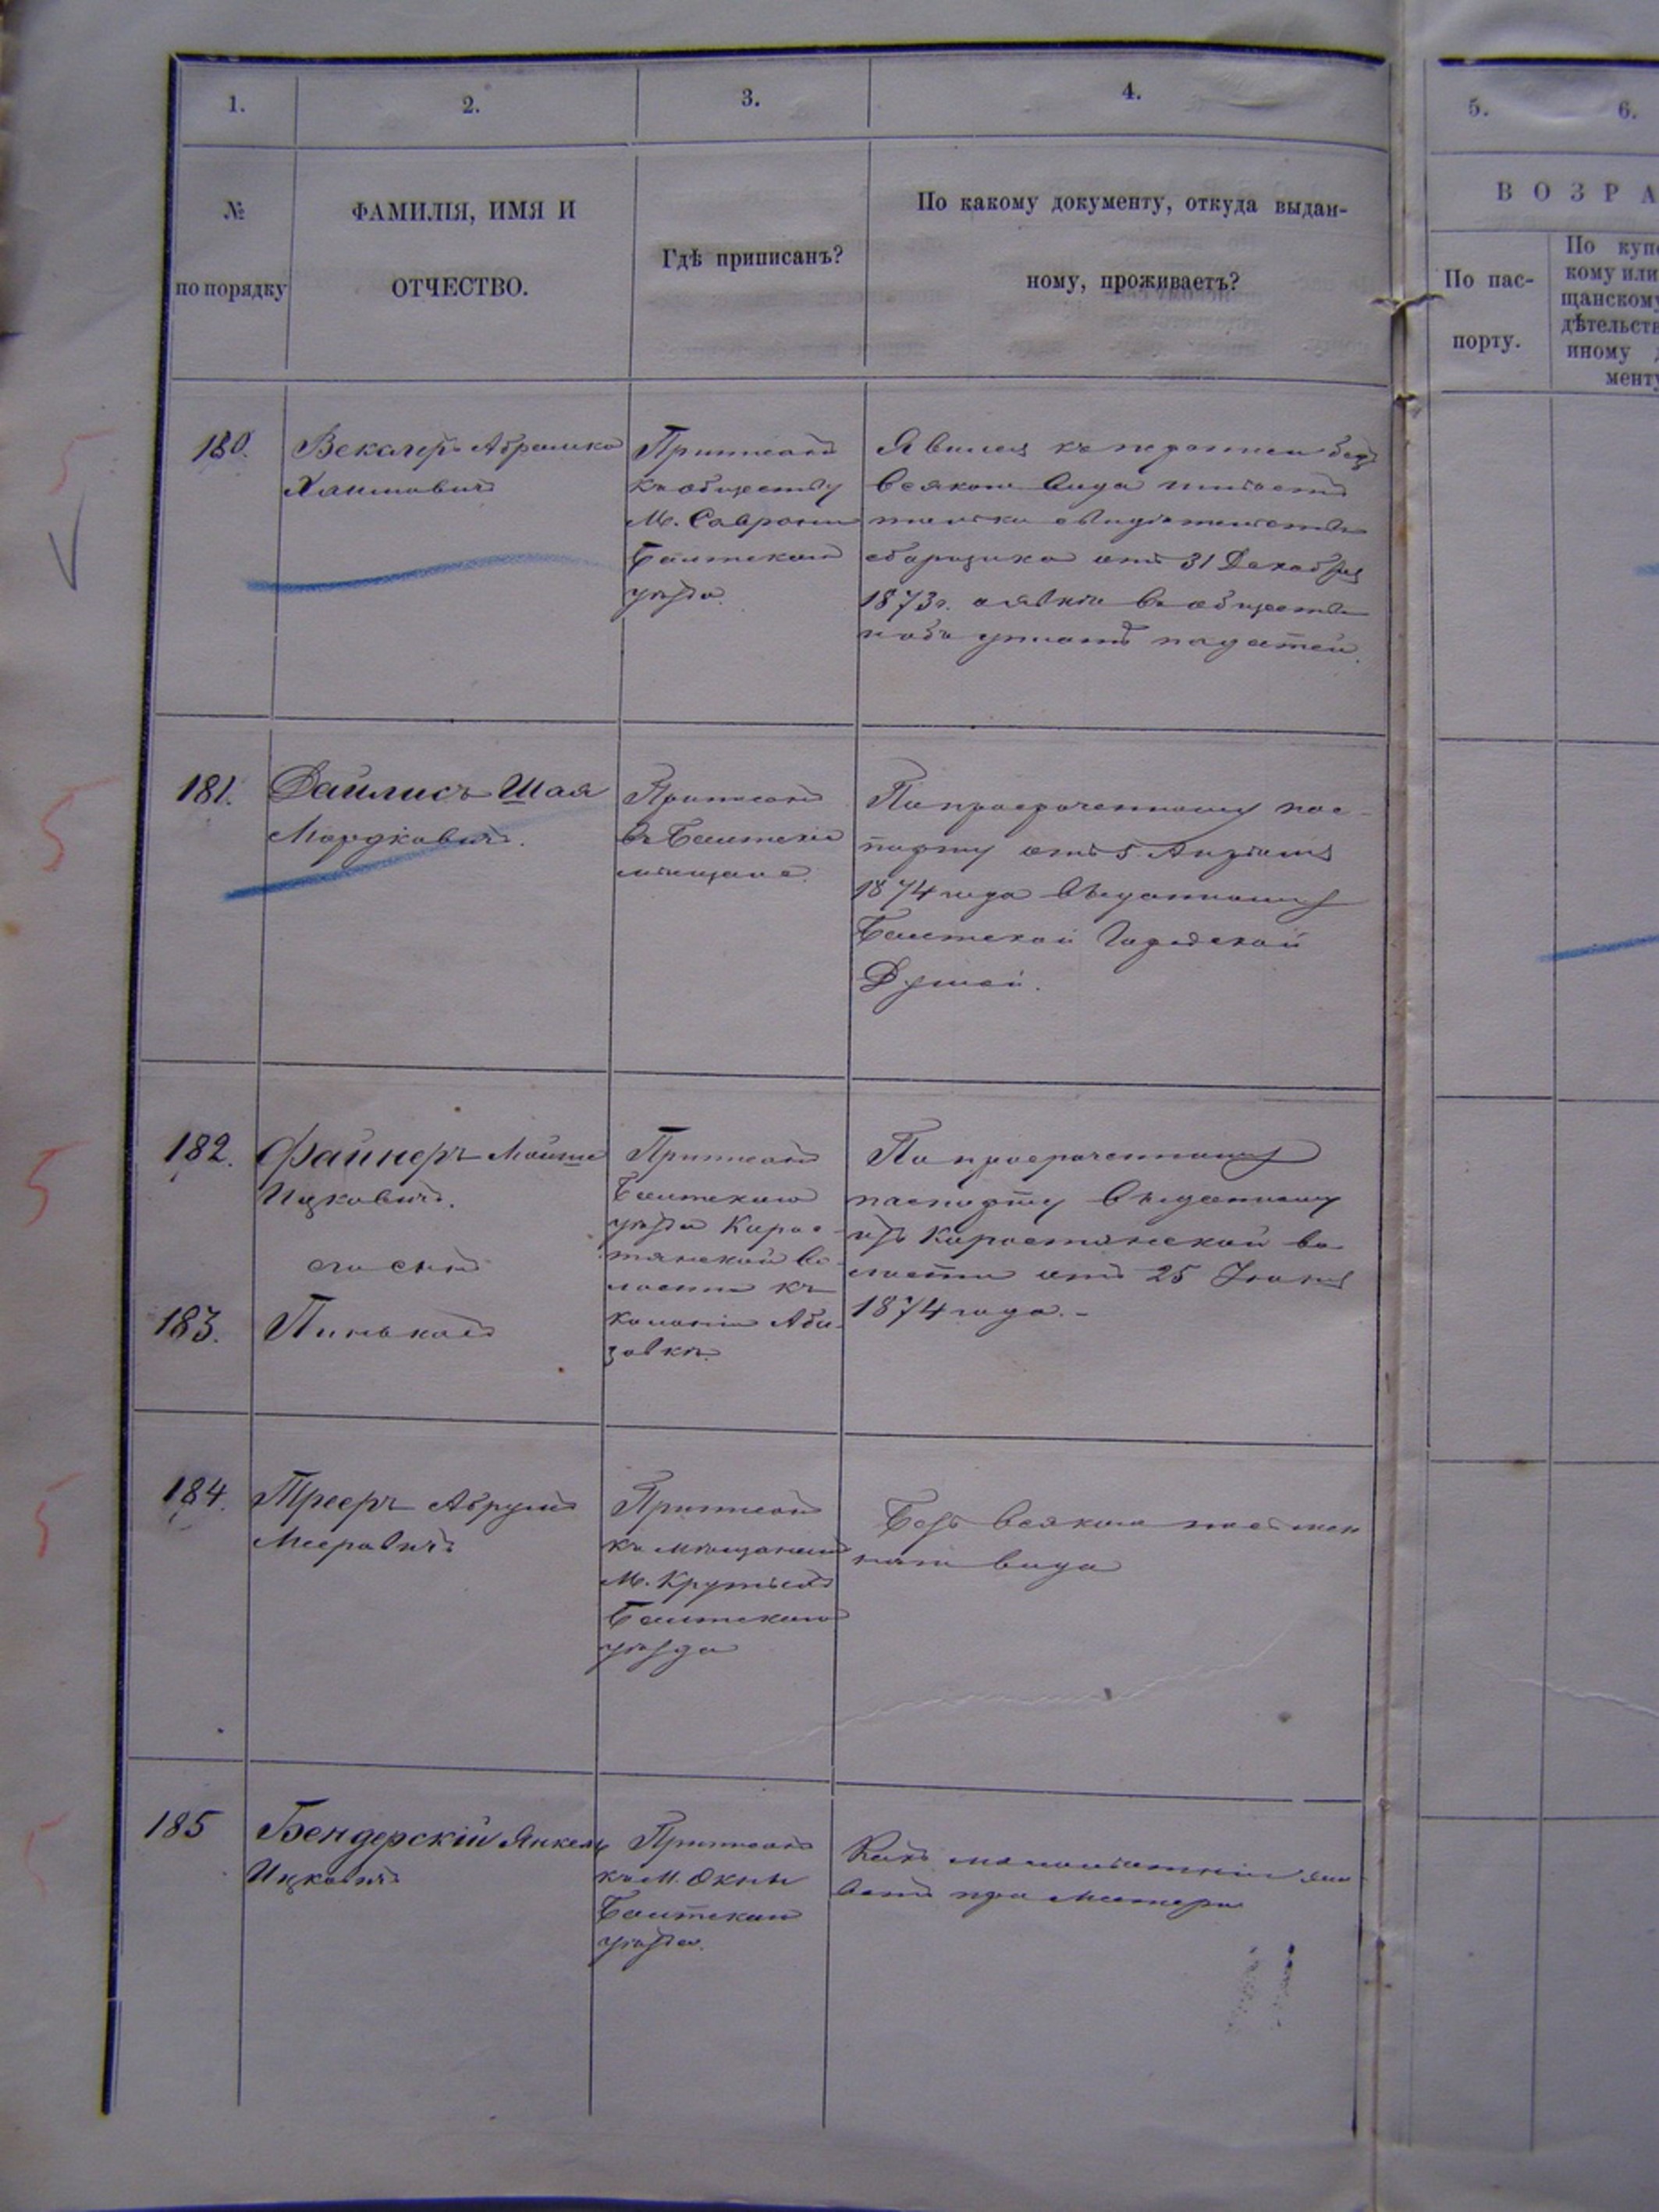 1.
2.
3.
4.
5.
6.
№
по порядку
ФАМИЛІЯ, ИМЯ И
ОТЧЕСТВО.
Гдѣ приписанъ?
По какому документу, откуда выдан-
ному, проживаетъ?
ВОЗРА
По пас-
порту.
По купе
кому или
щанскому
дѣтельств
иному
менту
180.
Векслеръ Абрамко
Хаимовичъ
Приписанъ
къ обществу
М. Саврани
Балтскаго
уѣзда.
Явился къ переписи безъ
всякаго вида имѣетъ
только свидѣтельство
сборщика отъ 31 Декабря
1873г. о явкѣ въ общество
подати
181.
Файлисъ Шая
Мордковичъ.
Приписанъ
въ Балтскіе
мѣщане.
По просроченному пас-
порту отъ 5 Апрѣля
1874 года выданному
Балтской Городской
Думой.
182.
Файнеръ Мойше
Ицковичъ.
его сынъ
183.
Пинькасъ
Приписанъ
Балтскаго
уѣзда Корос-
тянской во-
лости къ
колоніи Аби-
зовкѣ.
По просроченному
паспорту выданному
изъ Коростянской во-
лости отъ 25 Іюня
1874 года.-
184.
Трееръ Абрумъ
Мееровичъ
Приписанъ
къ мѣщанамъ
М. Крутыхъ
Балтскаго
уѣзда
Безъ всякаго письмен
наго вида
185
Бендерскій Янкель
Ицковичъ
Приписанъ
къ М. Окны
Балтскаго
уѣзда.
Какъ малолѣтній
при Матери
5
5
5
5
5